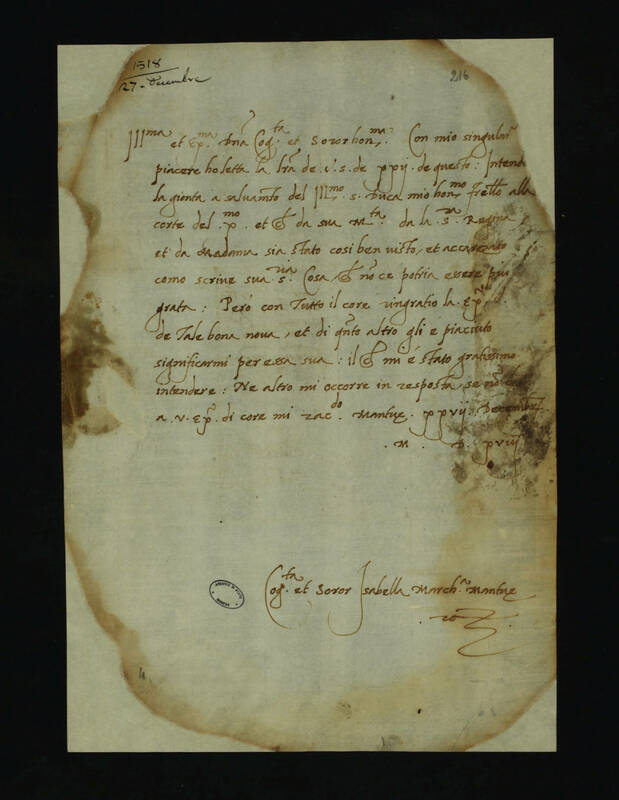 1518
27 - Decembre
216
Ill.ma et Ex.ma Dna Cog.ta et Soror hon.ma. Con mio singular
piacere ho letta la lra de v.s. de xxij. de questo: Intend
la gionta a salvamto del Ill.mo s. Duca mio hon.mo frello alla
corte del x.mo et che da sua M.ta da la s.ma Regina,
et da Madama sia stato cosi ben visto, et accarezato
como scrive sua s.ria Cosa che nō ce potria essere piu
grata: Però con Tutto il core ringratio la Ex.
de Tale bona nova, et di qnto altro gli è piaciuto
significarmi per essa sua: il che mi è stato gratissimo
intendere: Ne altro mi occorre in resposta, se nō
a .v. Ex. di core mi rac.do Mantue. xxvij. Decembr.
.M. D. xviij
Cog.ta et Soror Isabella March.a Mantue
4